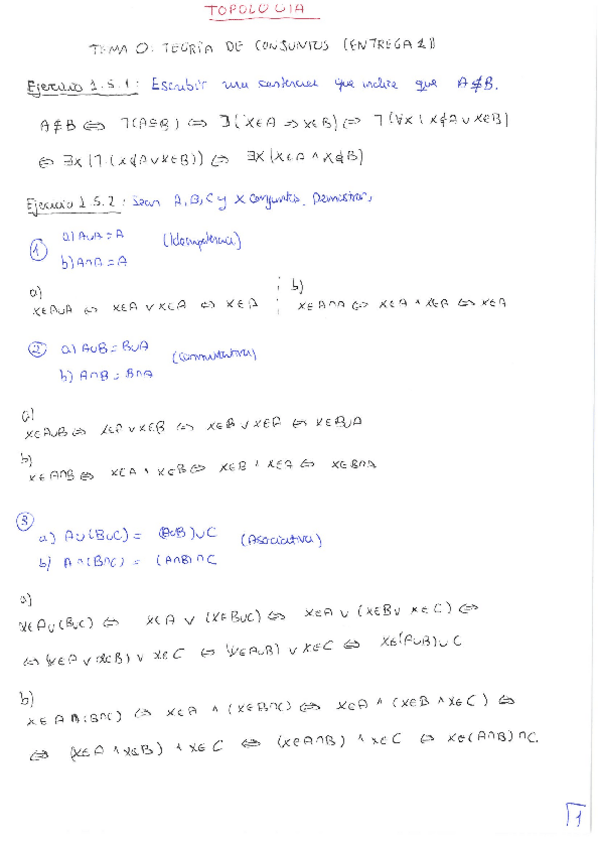 TOPOLOGIA
TEMA 0: TEORÍA DE CONJUNTOS (ENTREGA 1)
Ejercicio 1.5.1: Escribir una sentencia que indique que A⊈B.
A⊈B ⇔ ⅂(A⊆B) ⇔ ⅂(x∈A ⇒ x∈B) ⇔ ⅂(∀x | x∉A ∨ x∈B)
⇔ ∃x (⅂(x∉A ∨ x∈B)) ⇔ ∃x (x∈A ∧ x∉B)
Ejercicio 1.5.2: Sean A, B, C y X conjuntos. Demostrar:
① a) A∪A = A (Idempotencia)
b) A∩A = A
a) b)
x∈A∪A ⇔ x∈A ∨ x∈A ⇔ x∈A x∈A∩A ⇔ x∈A ∧ x∈A ⇔ x∈A
② a) A∪B = B∪A (Conmutativa)
b) A∩B = B∩A
a)
x∈A∪B ⇔ x∈A ∨ x∈B ⇔ x∈B ∨ x∈A ⇔ x∈B∪A
b)
x∈A∩B ⇔ x∈A ∧ x∈B ⇔ x∈B ∧ x∈A ⇔ x∈B∩A
③ a) A∪(B∪C) = (A∪B)∪C (Asociativa)
b) A∩(B∩C) = (A∩B)∩C
a)
x∈A∪(B∪C) ⇔ x∈A ∨ (x∈B∪C) ⇔ x∈A ∨ (x∈B ∨ x∈C) ⇔
⇔ (x∈A ∨ x∈B) ∨ x∈C ⇔ (x∈A∪B) ∨ x∈C ⇔ x∈(A∪B)∪C
b)
x∈A∩(B∩C) ⇔ x∈A ∧ (x∈B∩C) ⇔ x∈A ∧ (x∈B ∧ x∈C) ⇔
⇔ (x∈A ∧ x∈B) ∧ x∈C ⇔ (x∈A∩B) ∧ x∈C ⇔ x∈(A∩B)∩C.
1